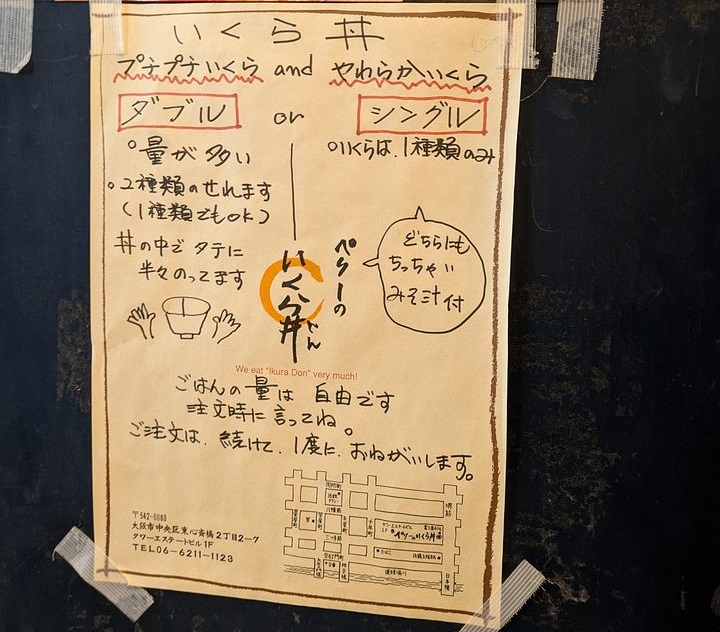 いくら丼
プチプチいくら and やわらかいくら
ダブル or シングル
○量が多い
○いくらは、1種類のみ
○2種類のせれます
(1種類でもOK)
丼の中でタテに
半々のってます
ぺりーの
いくら丼
どん
どちらにも
ちっちゃい
みそ汁付
We eat "Ikura Don" very much!
ごはんの量は 自由です
注文時に言ってね。
ご注文は、続けて、1度に、おねがいします。
〒542-0083
大阪市中央区東心斎橋2丁目2-7
タワーエステートビル1F
TEL06-6211-1123
八幡筋
三ツ寺筋
堺筋
道頓堀川
日本橋